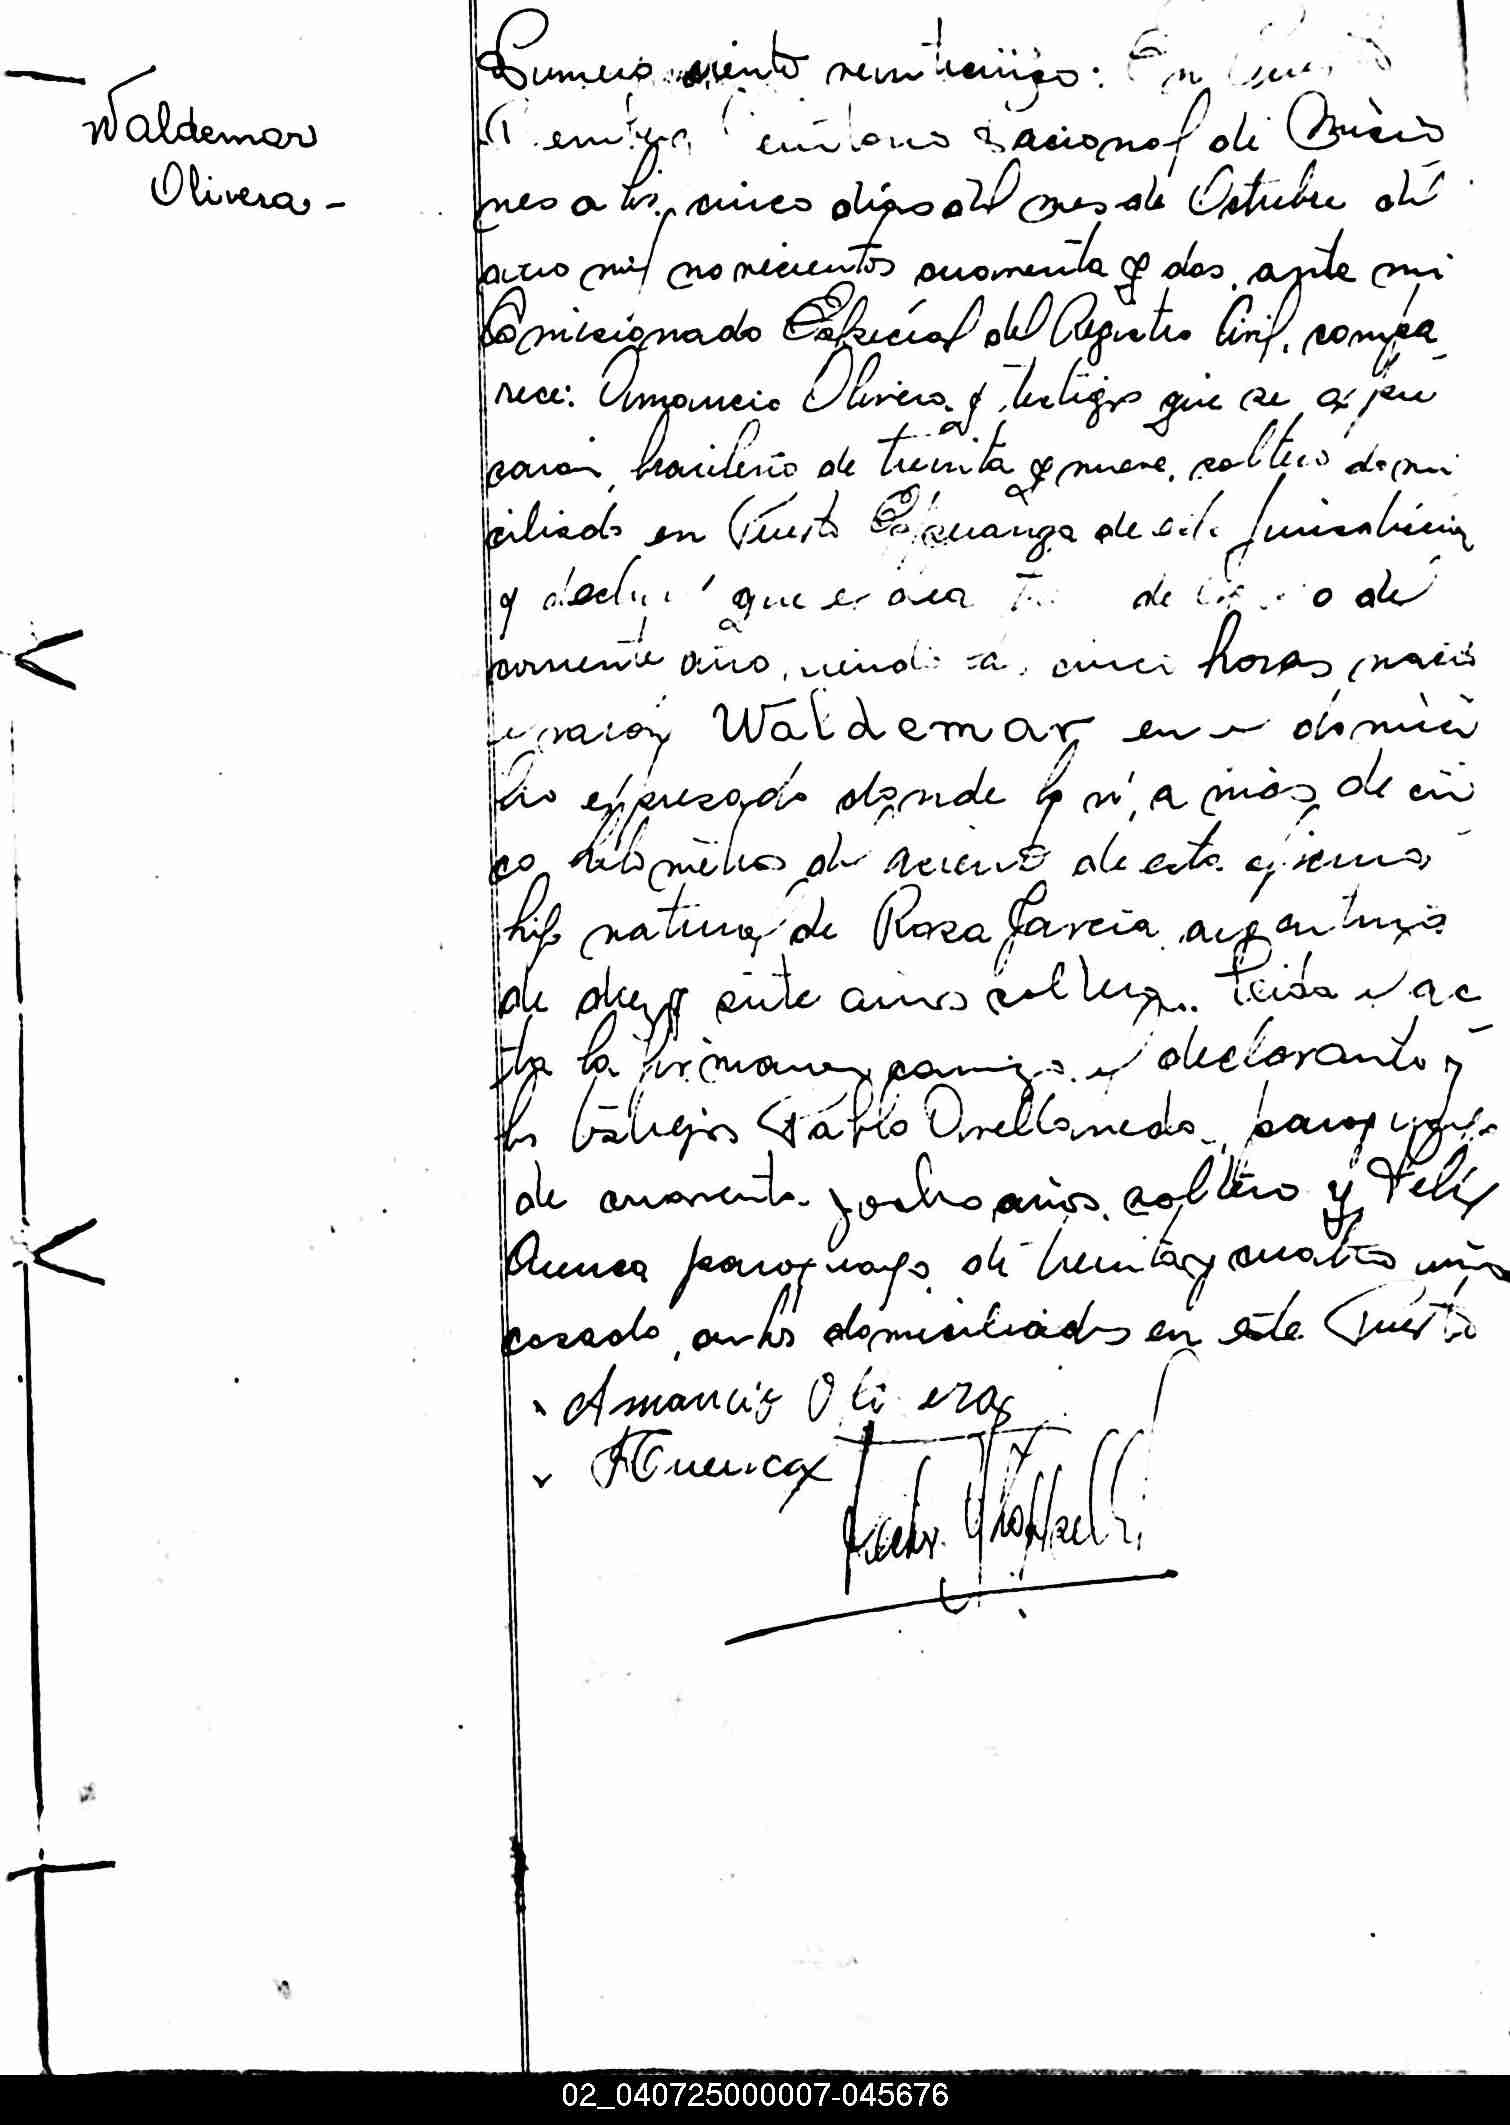 Waldemar
Olivera -
Numero ciento veinticinco: En
Territorio Nacional de Micio
nes a los cinco dias del mes de Octubre del
año mil novecientos cuarenta y dos, ante mi
Comicionado Especial del Registro Civil, compa
rece: Amancio Olivera y testigos que se expre
saran, brasileño de treinta y nueve, soltero domi
ciliado en Puerto Esperanza de esta jurisdiccion
y declaró que el dia de de
corriente año, siendo las cinco horas, nació
el varon Waldemar en el domici
lio expresado donde lo ví, a más de cin
co kilometros de asiento de esta oficina
hijo natural de Rosa Garcia argentina
de diez y siete años soltera. Leida el ac
ta la firmaron conmigo el declarante y
los testigos Pablo Avellaneda, paraguayo
de cuarenta y ocho años, soltero y Felix
Cuenca paraguayo de treinta y cuatro años
casado, ambos domiciliados en este Puerto
Amancio Olivera
F Cuenca
02_040725000007-045676